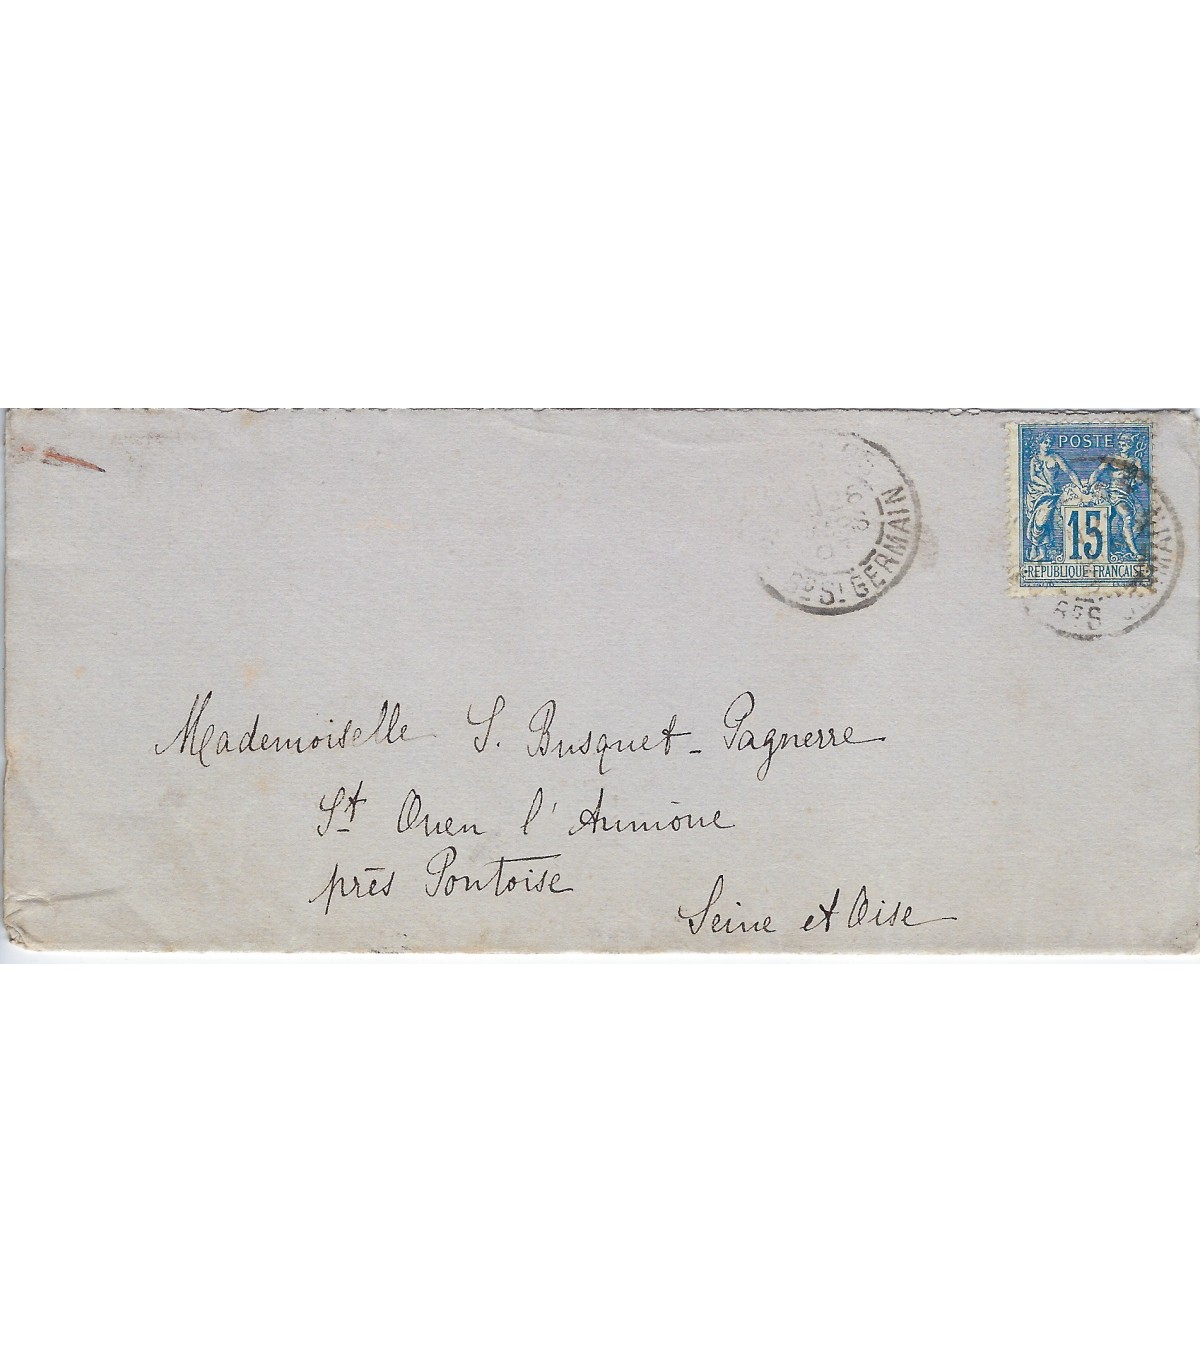 POSTE
15
REPUBLIQUE FRANCAISE
Bᴰ Sᵀ GERMAIN
Mademoiselle S. Busquet-Pagnerre
St Ouen l'Aumône
près Pontoise
Seine et Oise